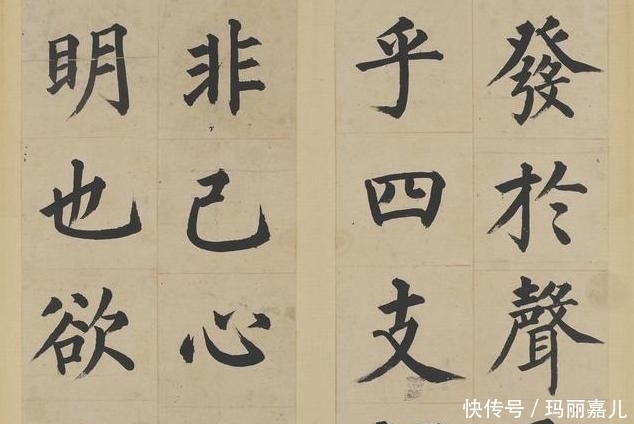 發於聲
乎四支
非己心
明也欲
快传号 / 玛丽嘉儿